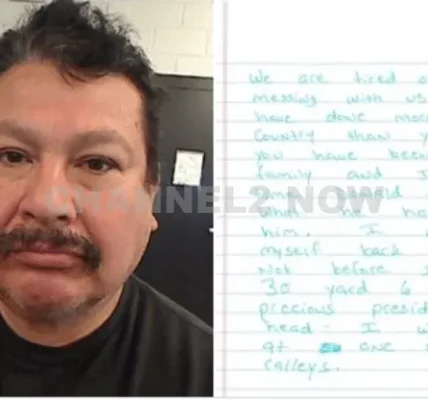 We are tired o
messing with us
have done mor
Country than y
you have been
family and I
what he ha
CHANNEL2 NOW
him. I
myself back
Not before
30 yard 6
precious presid
head - I w
at one
ralleys.